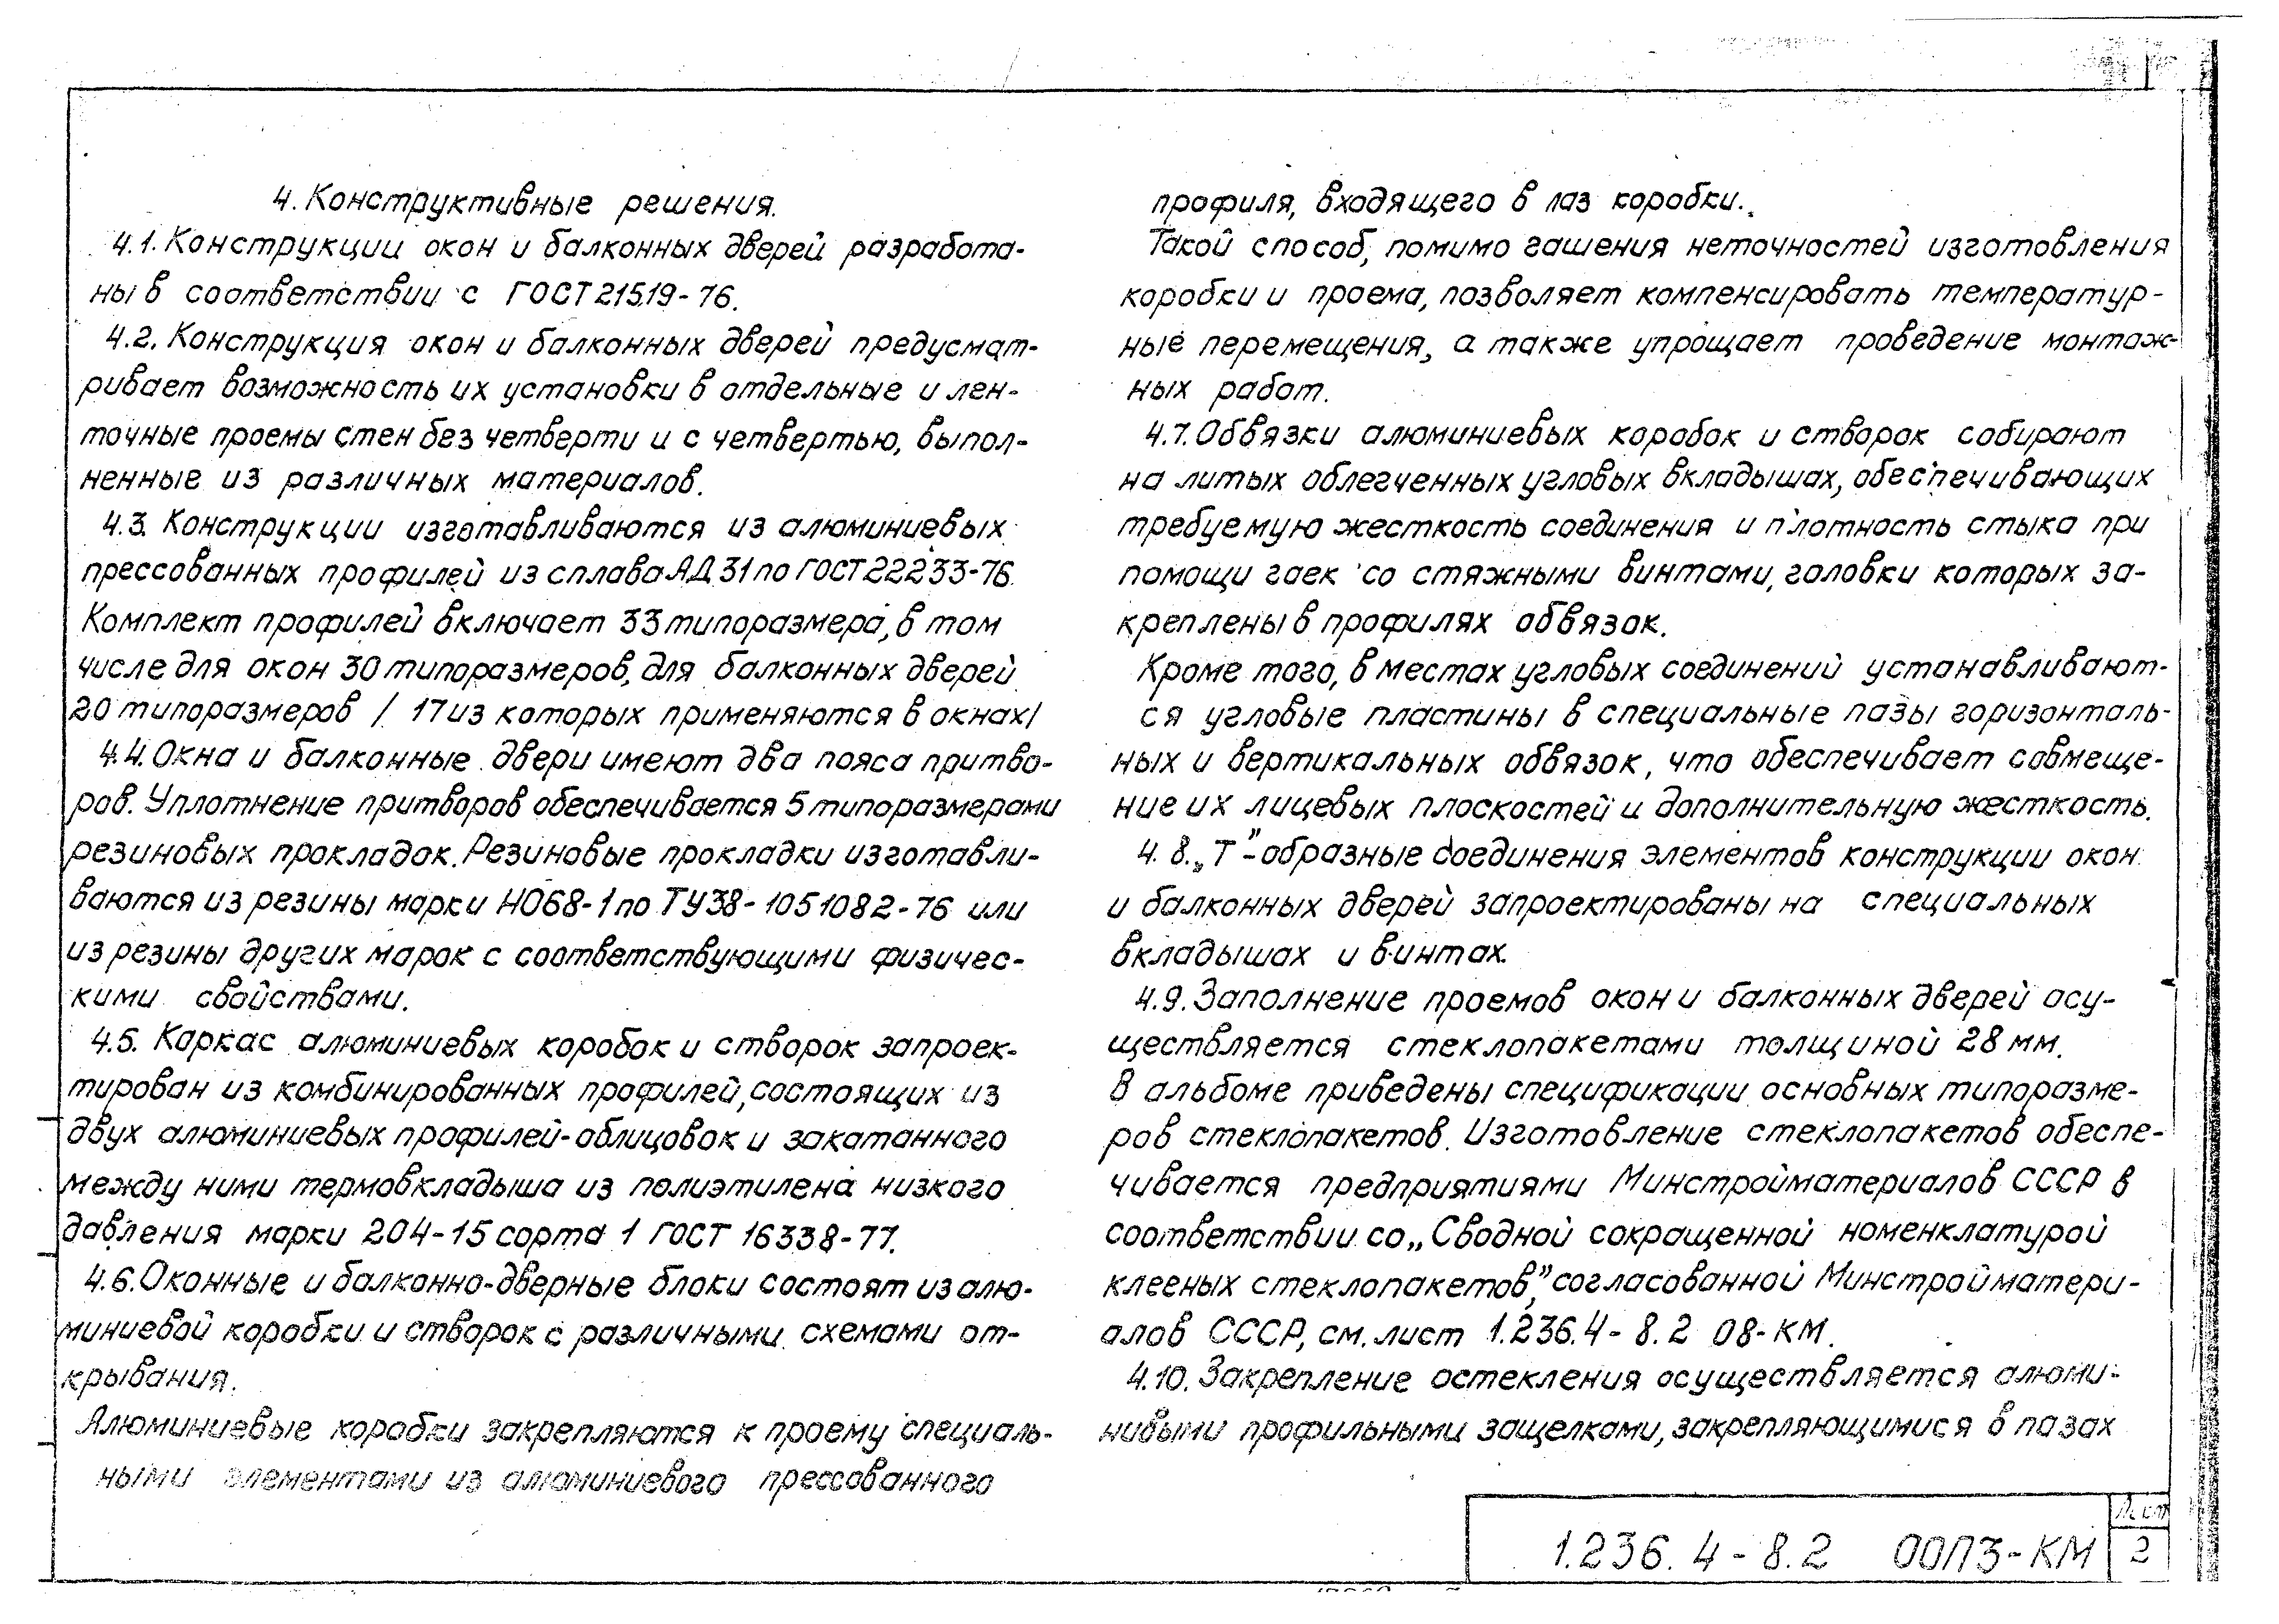 4. Конструктивные решения.
4.1. Конструкции окон и балконных дверей разработа-
ны в соответствии с ГОСТ 21519-76.
4.2. Конструкция окон и балконных дверей предусмат-
ривает возможность их установки в отдельные и лен-
точные проемы стен без четверти и с четвертью, выпол-
ненные из различных материалов.
4.3. Конструкции изготавливаются из алюминиевых
прессованных профилей из сплава АД 31 по ГОСТ 22233-76.
Комплект профилей включает 33 типоразмера, в том
числе для окон 30 типоразмеров, для балконных дверей
20 типоразмеров / 17 из которых применяются в окнах/
4.4. Окна и балконные двери имеют два пояса притво-
ров. Уплотнение притворов обеспечивается 5 типоразмерами
резиновых прокладок. Резиновые прокладки изготавли-
ваются из резины марки НО68-1 по ТУ38-1051082-76 или
из резины других марок с соответствующими физичес-
кими свойствами.
4.5. Каркас алюминиевых коробок и створок запроек-
тирован из комбинированных профилей, состоящих из
двух алюминиевых профилей-облицовок и закатанного
между ними термовкладыша из полиэтилена низкого
давления марки 204-15 сорта 1 ГОСТ 16338-77.
4.6. Оконные и балконно-дверные блоки состоят из алю-
миниевой коробки и створок с различными схемами от-
крывания.
Алюминиевые коробки закрепляются к проему специаль-
ными элементами из алюминиевого прессованного
профиля, входящего в паз коробки.
Такой способ, помимо гашения неточностей изготовления
коробки и проема, позволяет компенсировать температур-
ные перемещения, а также упрощает проведение монтаж-
ных работ.
4.7. Обвязки алюминиевых коробок и створок собирают
на литых облегченных угловых вкладышах, обеспечивающих
требуемую жесткость соединения и плотность стыка при
помощи гаек со стяжными винтами, головки которых за-
креплены в профилях обвязок.
Кроме того, в местах угловых соединений устанавливают-
ся угловые пластины в специальные пазы горизонталь-
ных и вертикальных обвязок, что обеспечивает совмеще-
ние их лицевых плоскостей и дополнительную жесткость.
4.8. „Т"-образные соединения элементов конструкции окон
и балконных дверей запроектированы на специальных
вкладышах и винтах.
4.9. Заполнение проемов окон и балконных дверей осу-
ществляется стеклопакетами толщиной 28 мм.
В альбоме приведены спецификации основных типоразме-
ров стеклопакетов. Изготовление стеклопакетов обеспе-
чивается предприятиями Минстройматериалов СССР в
соответствии со „Сводной сокращенной номенклатурой
клееных стеклопакетов," согласованной Минстройматери-
алов СССР, см. лист 1.236.4-8.2 08-КМ.
4.10. Закрепление остекления осуществляется алюми-
нивыми профильными защелками, закрепляющимися в пазах
1.236.4-8.2 00ПЗ-КМ
Лист
2